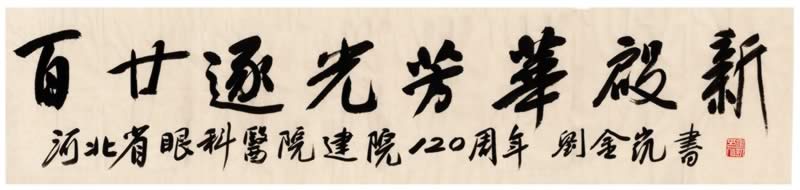 百廿逐光芳華啟新
河北省眼科醫院建院120周年 劉金凯書